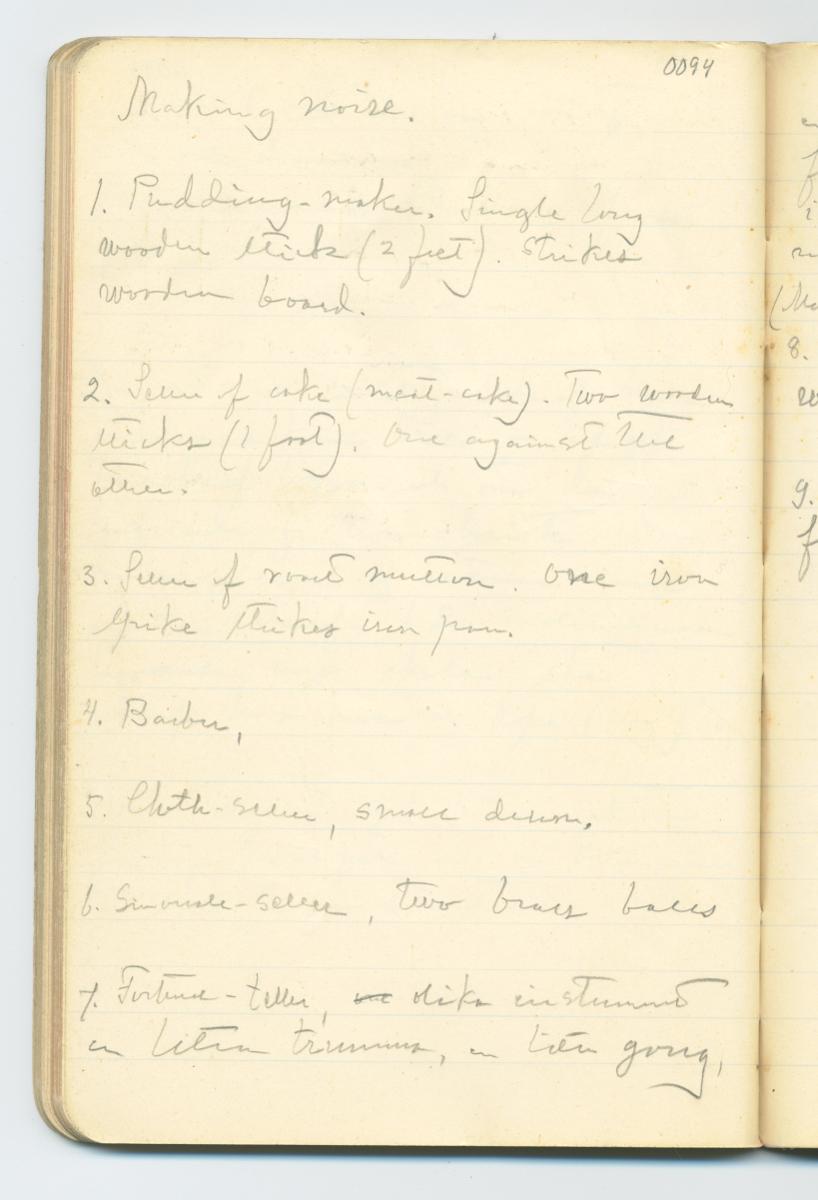 0094
Making noise.
1. Pudding-maker. Single long
wooden stick (2 feet). strikes
wooden board.
2. Seller of cake (meat-cake). Two wooden
sticks (1 foot). One against the
other.
3. Seller of roast mutton. One iron
spike strikes iron pan.
4. Barber,
5. Cloth-seller, small drum.
6. -seller, two brass balls
7. Fortune-teller, olika instrument
en liten trumma, en liten gong,
8.
9.